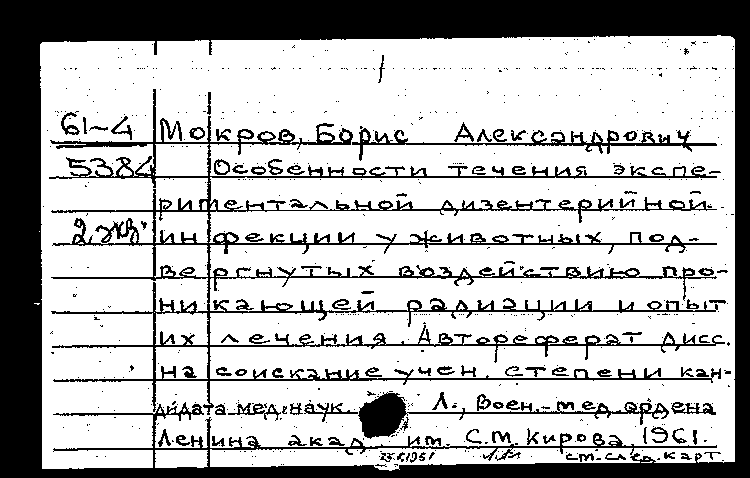 61-4 Мокров, Борис Александрович
5384 Особенности течения экспе-
риментальной дизентерийной
2 экз. инфекции у животных, под-
вергнутых воздействию про-
никающей радиации и опыт
их лечения. Автореферат дисс.
на соискание учен. степени кан-
дидата мед. наук. Л., Воен.-мед. ордена
Ленина акад. им. С.М. Кирова, 1961.
см. след. карт.